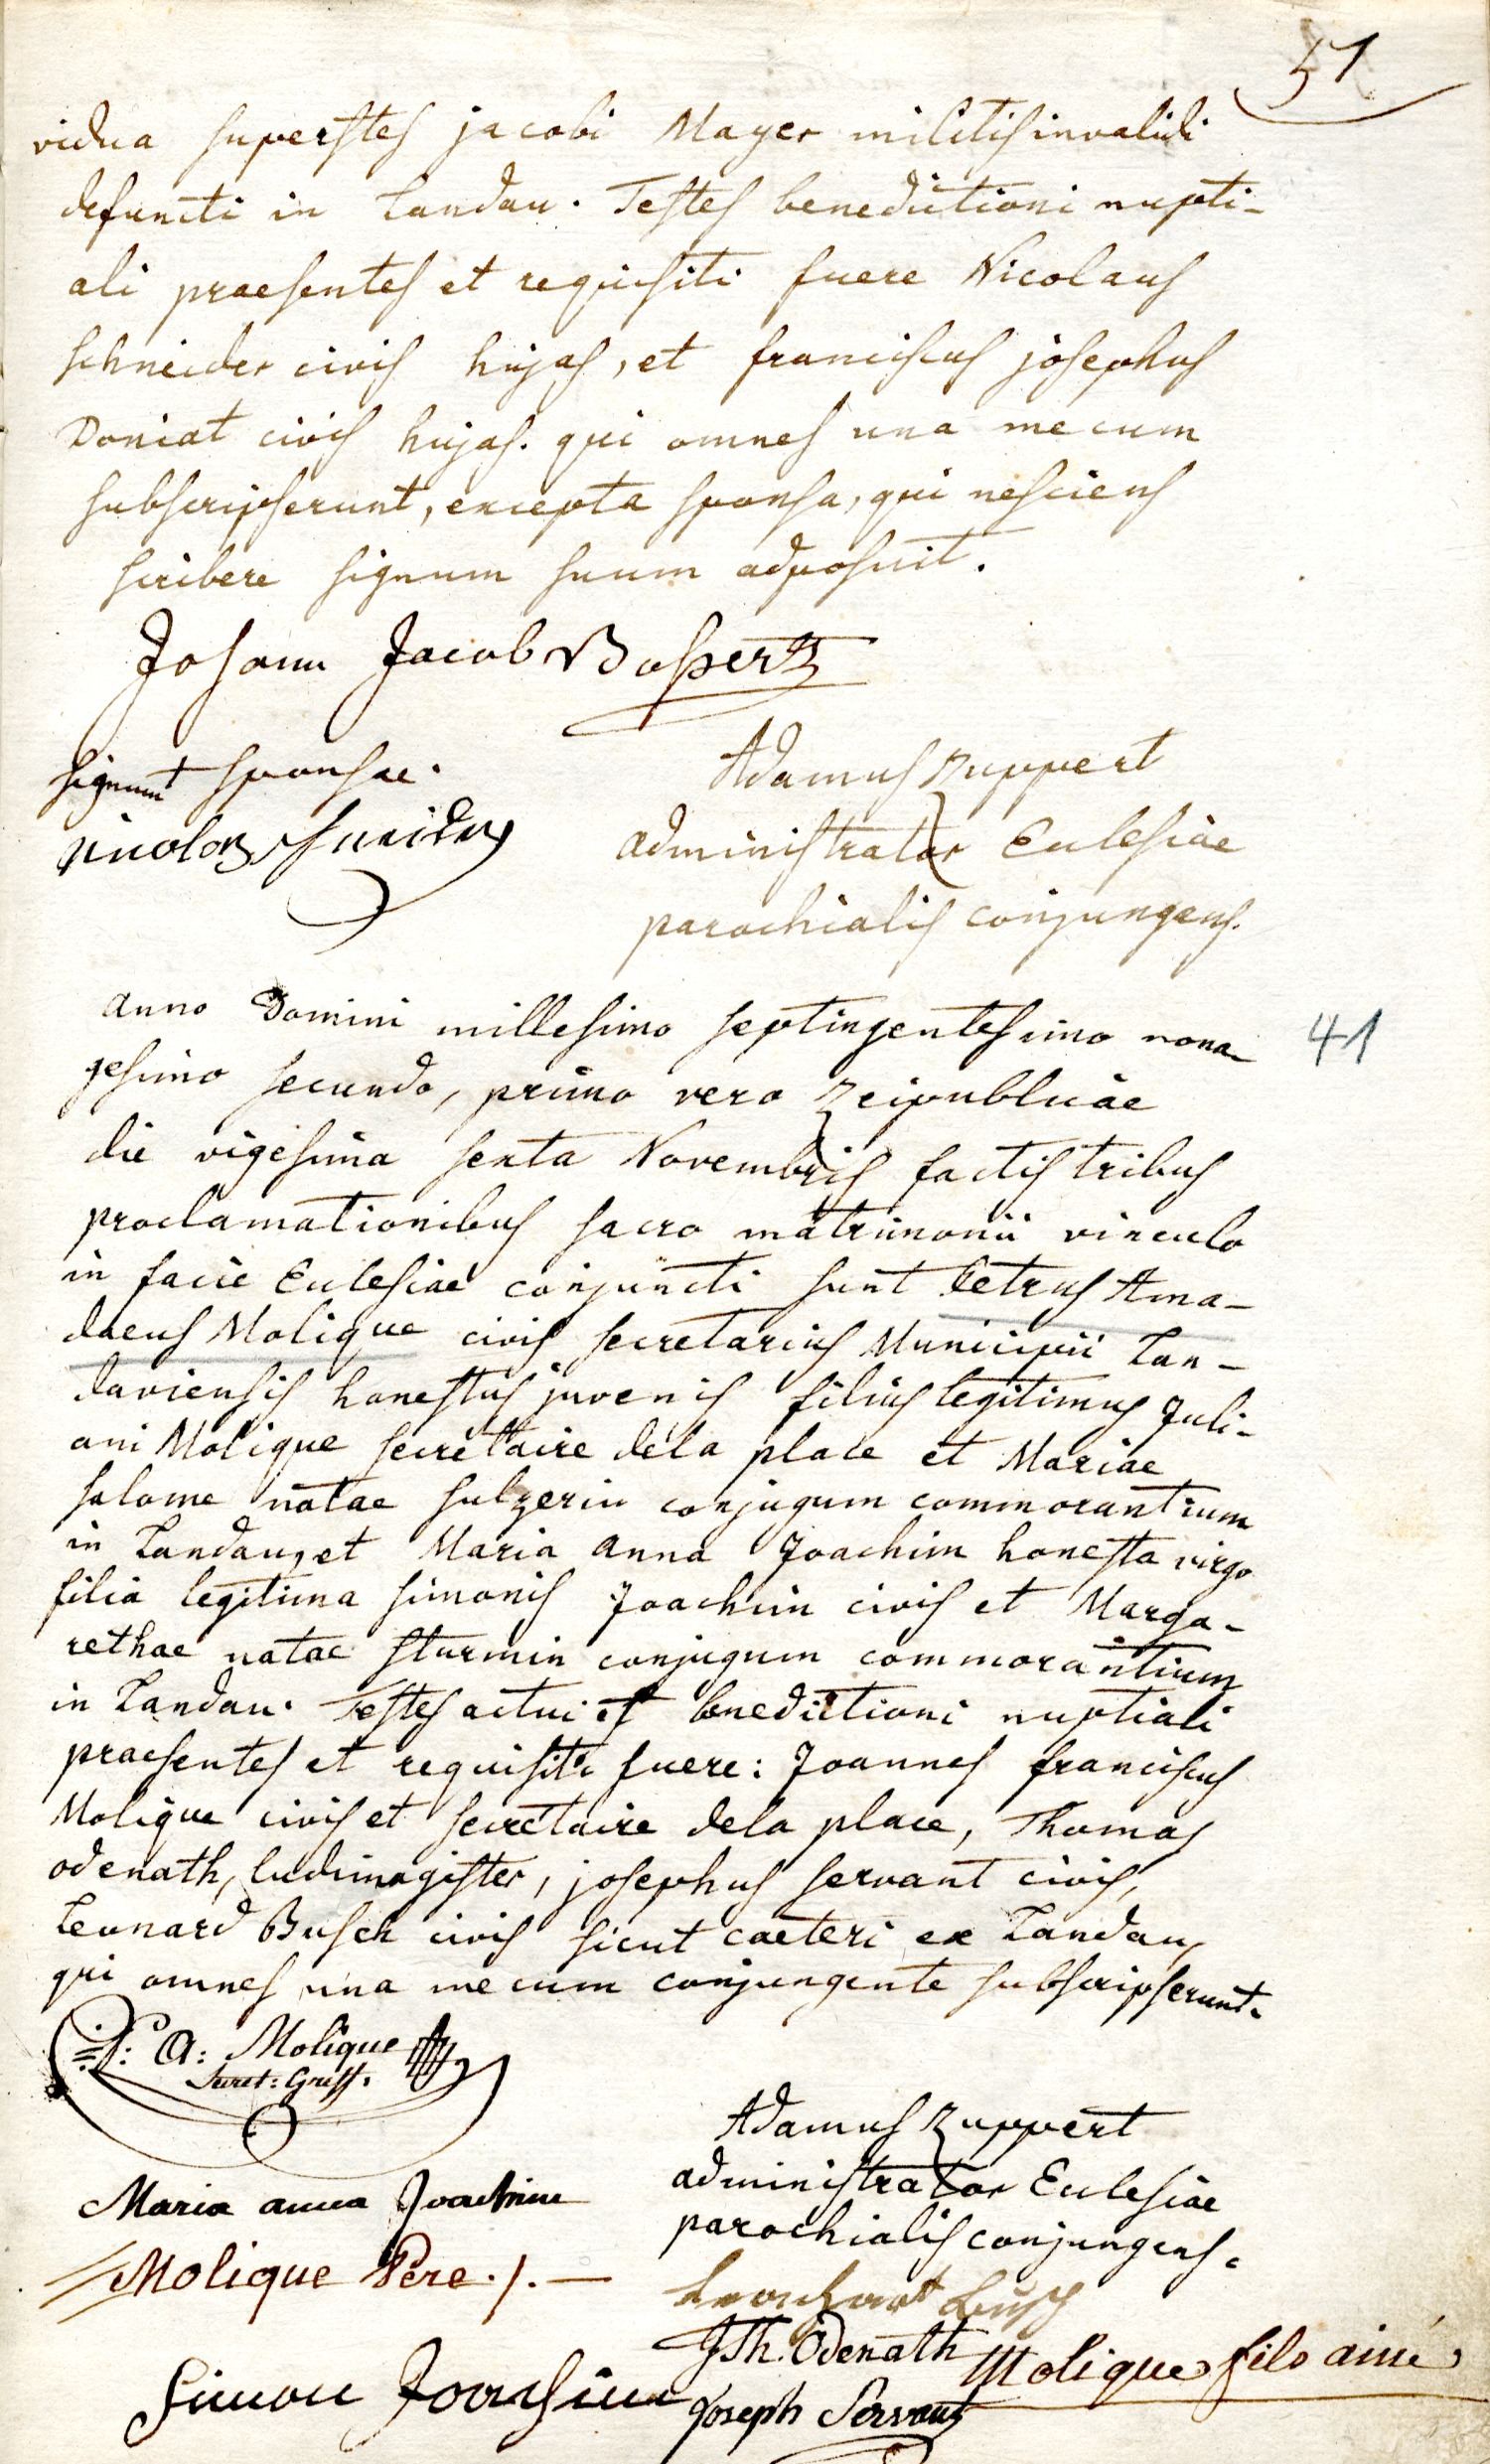 51
vidua superstes jacobi Mayer militis invalidi
defuncti in Landau. Testes benedictioni nupti-
ali praesentes et requisiti fuere Nicolaus
schneider civis hujas, et franciscus josephus
Doniat civis hujas. qui omnes una mecum
subscripserunt, excepta sponsa, qui nesciens
scribere signum suum adposuit.
Johann Jacob Bossertz
signum + sponsae.
Nicolas Schneider
Adamus Ruppert
administrator Ecclesiae
parochialis conjungens.
anno Domini millesimo septingentesimo nona-
41
gesimo secundo, primo vero Reipublicae
die vigesima sexta Novembris factis tribus
proclamationibus sacro matrimonii vinculo
in facie Ecclesiae conjuncti sunt Petrus Ama-
daeus Molique civis secretarius Municipii Lan-
daviensis honestus juvenis filius legitimus Juli-
ani Molique secretaire dela place et Mariae
salome natae sulzerin conjugum commorantium
in Landau, et Maria anna Joachim honesta virgo
filia legitima simonis Joachim civis et Marga-
rethae natae sturmin conjugum commorantium
in Landau. Testes actui et benedictioni nuptiali
praesentes et requisiti fuere: Joannes franciscus
Molique civis et secretaire dela place, Thomas
odenath, ludimagister, josephus servant civis,
Leonard Busch civis sicut caeteri ex Landau,
qui omnes una mecum conjungente subscripserunt.
P: A: Molique
Secret: Greff.
Adamus Ruppert
administrator Ecclesiae
parochialis conjungens.
Maria anna Joachim
Molique Père ./. —
Leonhart Busch
J Th. Odenath
Molique fils ainé
Simon Joachim
Joseph Servant